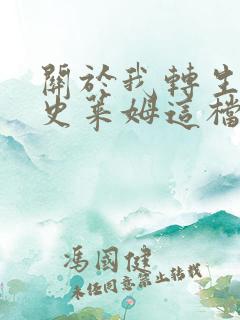 關於我轉生
史萊姆這檔
馮國健
未經同意禁止轉載